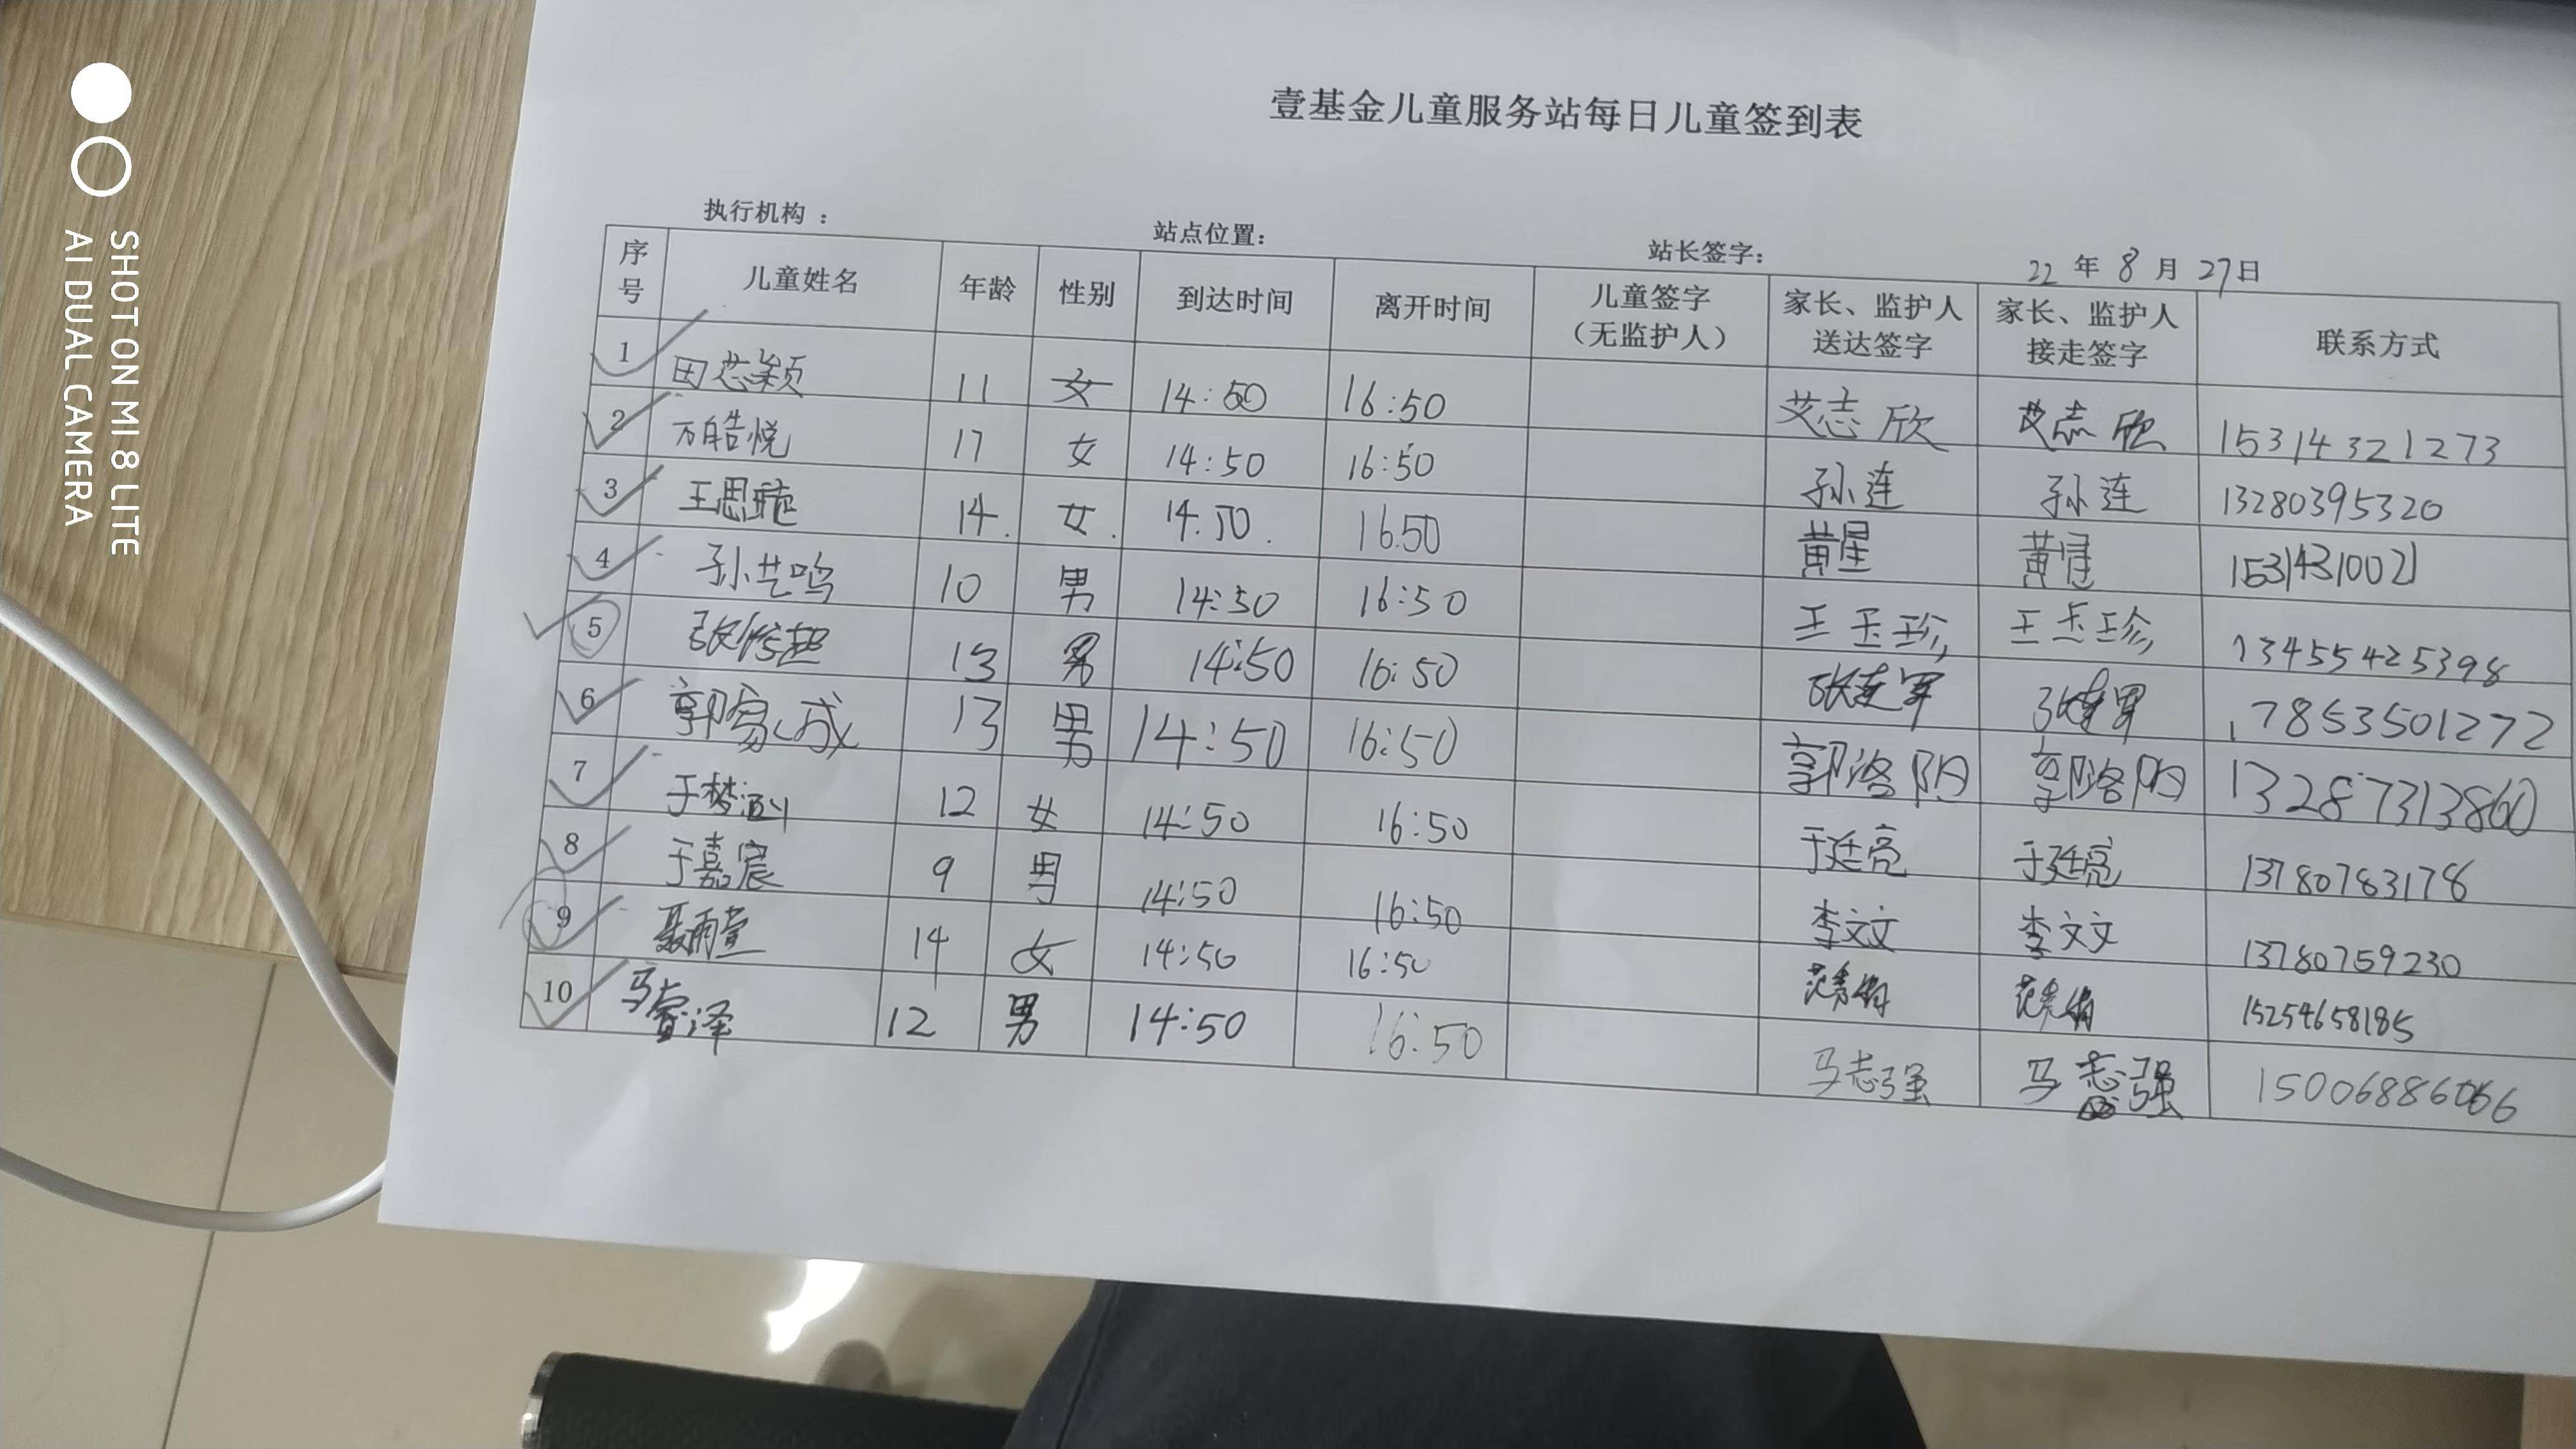 壹基金儿童服务站每日儿童签到表
执行机构 : 站点位置: 站长签字: 22 年 8 月 27日
序号 儿童姓名 年龄 性别 到达时间 离开时间 儿童签字（无监护人） 家长、监护人送达签字 家长、监护人接走签字 联系方式
1 田芯颖 11 女 14:50 16:50 艾志欣 艾志欣 15314321273
2 万皓悦 17 女 14:50 16:50 孙连 孙连 13280395320
3 王思璇 14. 女. 14.50. 16.50 黄星 黄星 15314310021
4 孙艺鸣 10 男 14:50 16:50 王玉珍 王玉珍 13455425398
5 13 男 14:50 16:50 张建军 张建军 17853501272
6 郭家成 13 男 14:50 16:50 郭洛阳 郭洛阳 13287313860
7 于梦涵 12 女 14:50 16:50 于廷亮 于廷亮 13780783178
8 于嘉宸 9 男 14:50 16:50 李文文 李文文 13780759230
9 聂雨萱 14 女 14:50 16:50 15254658185
10 12 男 14:50 16:50 马志强 马志强
SHOT ON MI 8 LITE
AI DUAL CAMERA